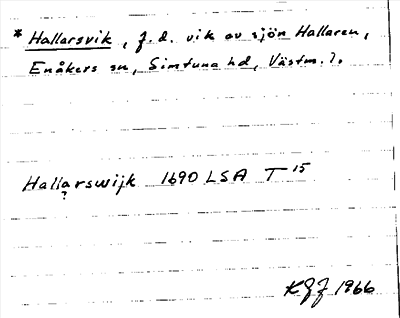 * Hallarsvik, f.d. vik av sjön Hallaren,
Enåkers sn, Simtuna hd, Västm. l.
Hallarswijk 1690 LSA T 15
?
KGJ 1966